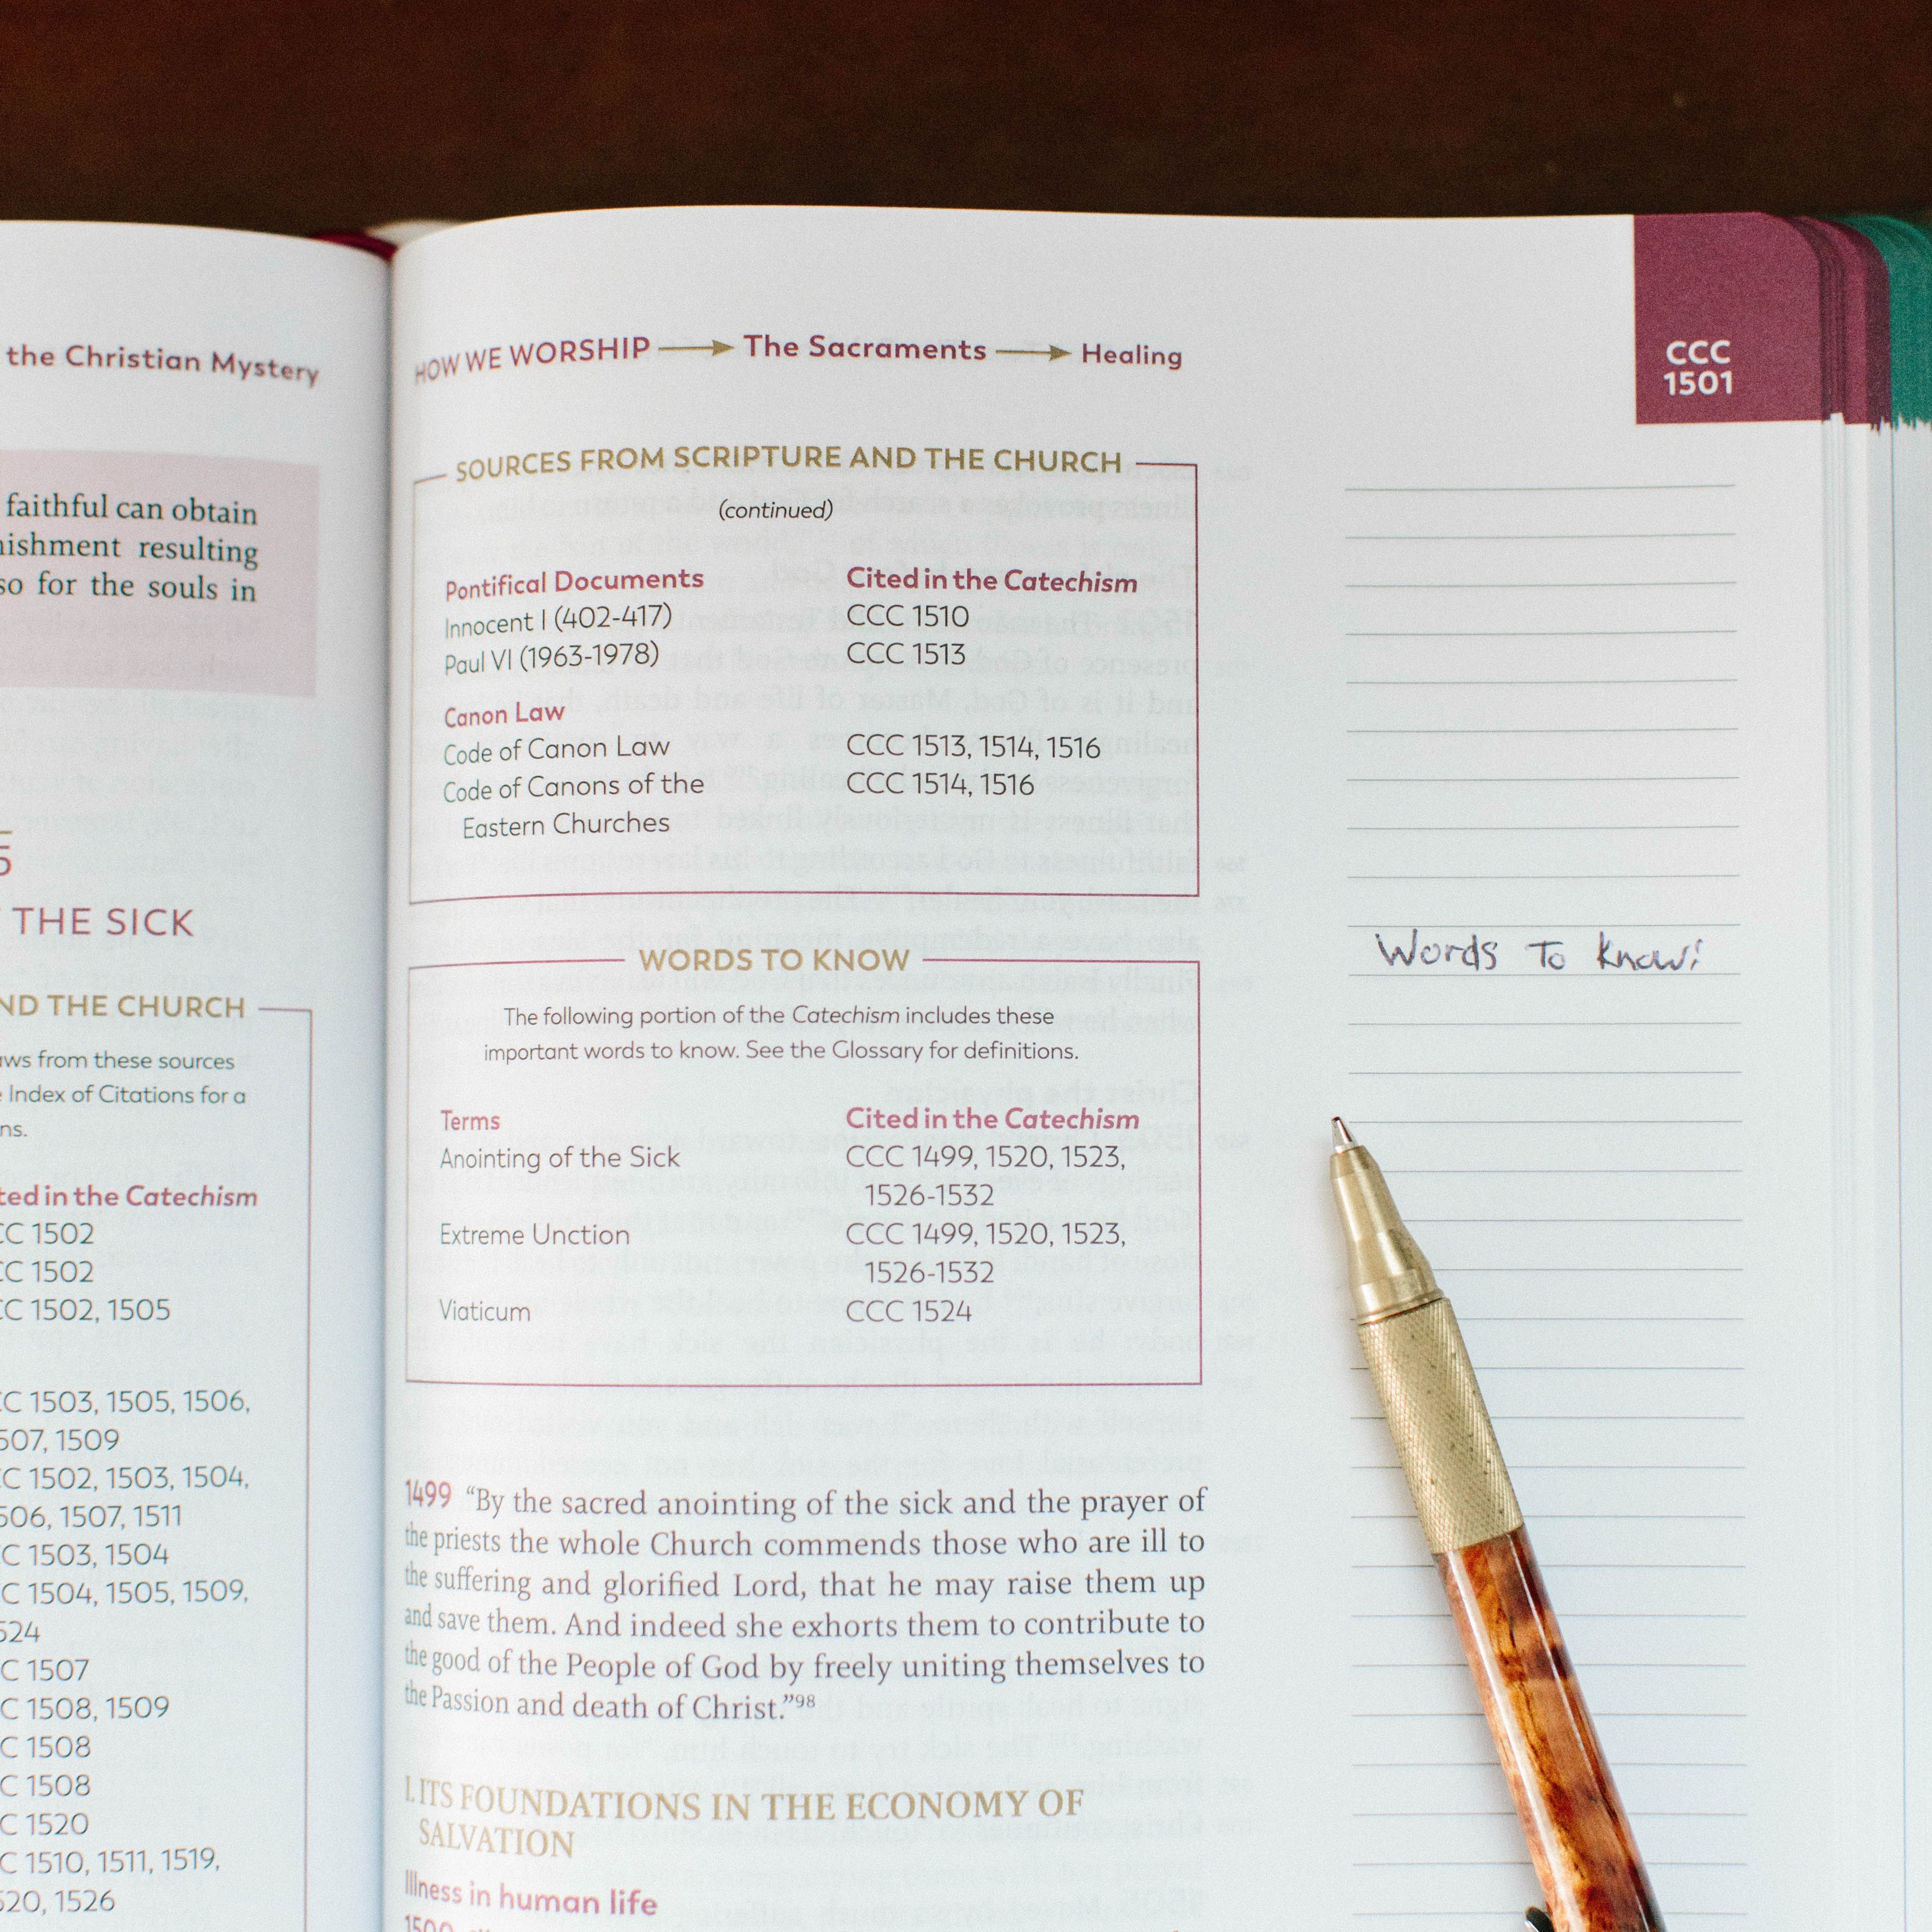 the Christian Mystery
faithful can obtain
resulting
for the souls in
THE SICK
THE CHURCH
from these sources
Index of Citations for a
in the Catechism
1502
1502
1502, 1505
1503, 1505, 1506,
1509
1502, 1503, 1504,
1507, 1511
1503, 1504
1504, 1505, 1509,
1507
1508, 1509
1508
1508
1520
1510, 1511, 1519,
1526
HOW WE WORSHIP → The Sacraments → Healing
CCC
1501
SOURCES FROM SCRIPTURE AND THE CHURCH
(continued)
Pontifical Documents Cited in the Catechism
Innocent I (402-417) CCC 1510
Paul VI (1963-1978) CCC 1513
Canon Law
Code of Canon Law CCC 1513, 1514, 1516
Code of Canons of the CCC 1514, 1516
Eastern Churches
WORDS TO KNOW
The following portion of the Catechism includes these
important words to know. See the Glossary for definitions.
Terms Cited in the Catechism
Anointing of the Sick CCC 1499, 1520, 1523,
1526-1532
Extreme Unction CCC 1499, 1520, 1523,
1526-1532
Viaticum CCC 1524
Words To Know!
1499 “By the sacred anointing of the sick and the prayer of
the priests the whole Church commends those who are ill to
the suffering and glorified Lord, that he may raise them up
and save them. And indeed she exhorts them to contribute to
the good of the People of God by freely uniting themselves to
the Passion and death of Christ.”98
I. ITS FOUNDATIONS IN THE ECONOMY OF
SALVATION
Illness in human life
1500